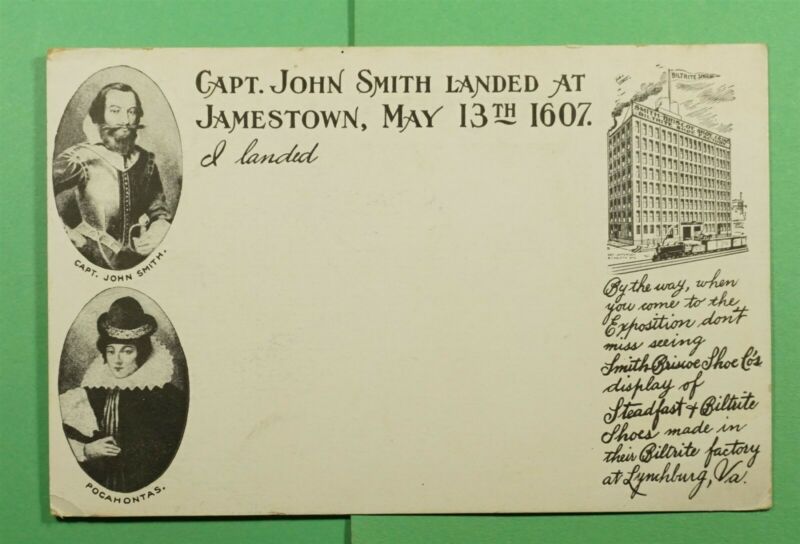 CAPT. JOHN SMITH LANDED AT
JAMESTOWN, MAY 13TH 1607.
I landed
CAPT. JOHN SMITH.
POCAHONTAS.
BILTRITE SHOES
By the way, when
you come to the
Exposition don't
miss seeing
Smith Briscoe Shoe Co's
display of
Steadfast & Biltrite
Shoes made in
their Biltrite factory
at Lynchburg, Va.